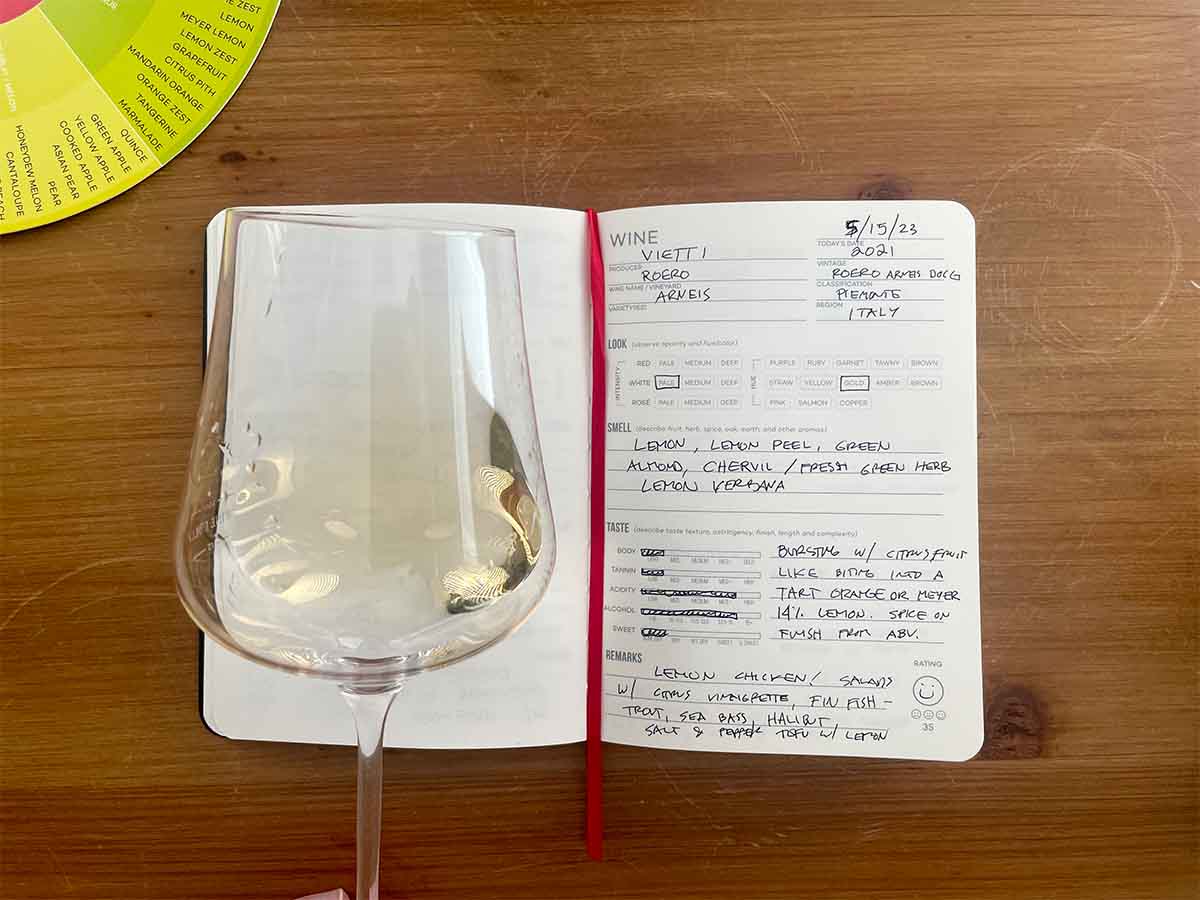 E ZEST
LEMON
MEYER LEMON
LEMON ZEST
GRAPEFRUIT
CITRUS PITH
MANDARIN ORANGE
ORANGE ZEST
TANGERINE
MARMALADE
QUINCE
GREEN APPLE
YELLOW APPLE
COOKED APPLE
ASIAN PEAR
PEAR
HONEYDEW MELON
CANTALOUPE
WINE
5/15/23
TODAY'S DATE
VIETTI
2021
PRODUCER
VINTAGE
ROERO
ROERO ARNEIS DOCG
WINE NAME / VINEYARD
CLASSIFICATION
ARNEIS
PIEMONTE
VARIETY(IES)
REGION
ITALY
LOOK (observe opacity and hue/color)
INTENSITY
RED PALE MEDIUM DEEP
WHITE PALE MEDIUM DEEP
ROSÉ PALE MEDIUM DEEP
HUE
PURPLE RUBY GARNET TAWNY BROWN
STRAW YELLOW GOLD AMBER BROWN
PINK SALMON COPPER
SMELL (describe fruit, herb, spice, oak, earth, and other aromas)
LEMON, LEMON PEEL, GREEN
ALMOND, CHERVIL / FRESH GREEN HERB
LEMON VERBANA
TASTE (describe taste texture, astringency, finish, length and complexity)
BODY
TANNIN
ACIDITY
ALCOHOL
SWEET
BURSTING W/ CITRUS FRUIT
LIKE BITING INTO A
TART ORANGE OR MEYER
14% LEMON. SPICE ON
FINISH FROM ABV.
REMARKS
RATING
LEMON CHICKEN! SALADS
W/ CITRUS VINAIGRETTE, FIN FISH -
TROUT, SEA BASS, HALIBUT
SALT & PEPPER TOFU W/ LEMON
35